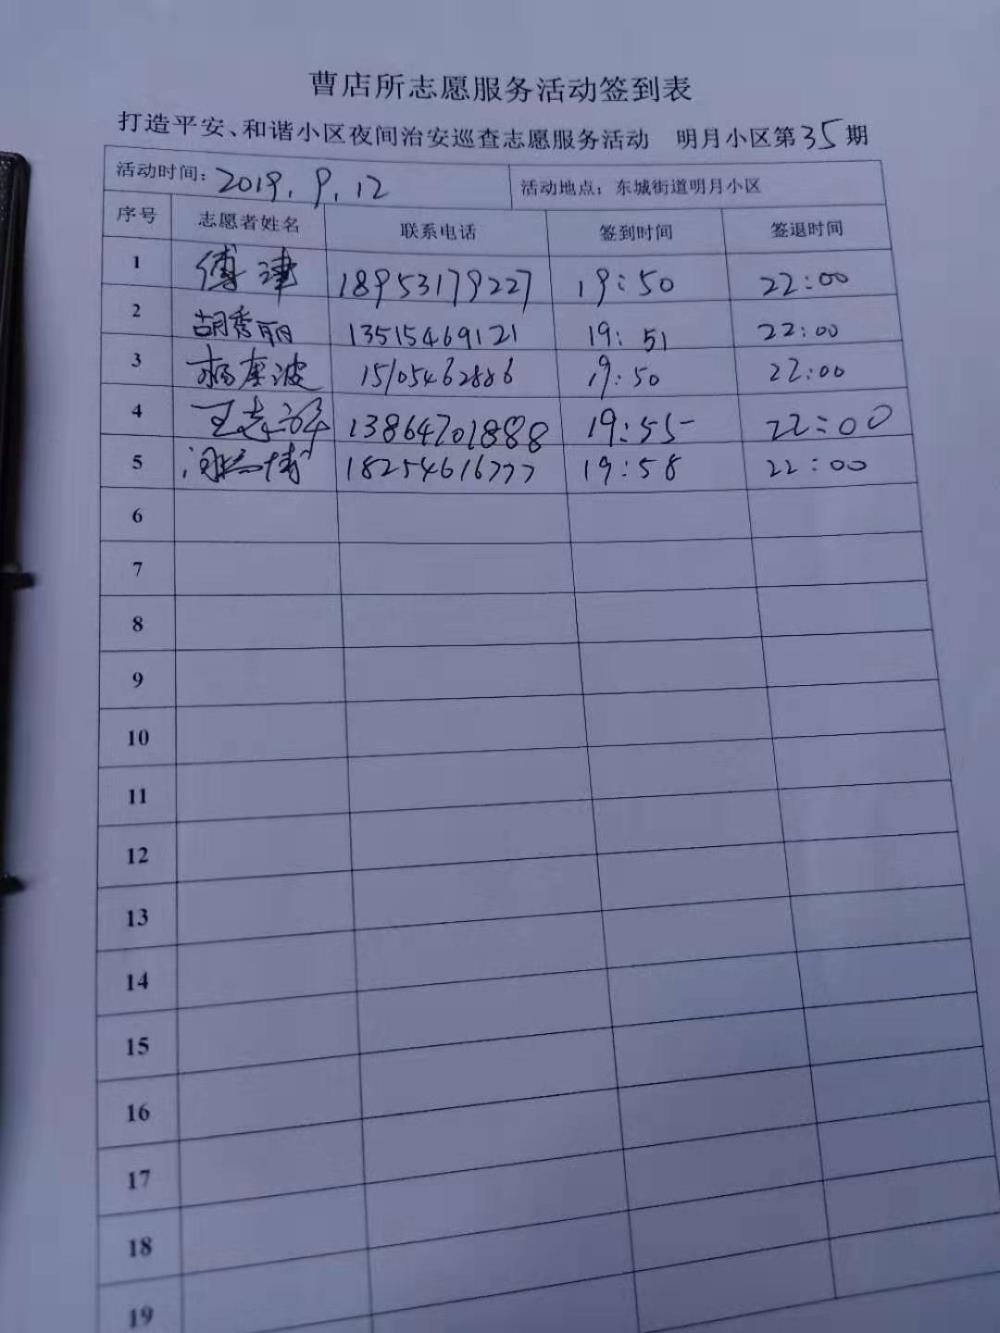 曹店所志愿服务活动签到表
打造平安、和谐小区夜间治安巡查志愿服务活动 明月小区第35期
活动时间: 2019.9.12 活动地点: 东城街道明月小区
序号 志愿者姓名 联系电话 签到时间 签退时间
1 傅津 18953179227 19:50 22:00
2 胡秀丽 13515469121 19:51 22:00
3 杨 波 15105462886 19:50 22:00
4 王志 13864701888 19:55 22:00
5 18254616777 19:58 22:00
6
7
8
9
10
11
12
13
14
15
16
17
18
19